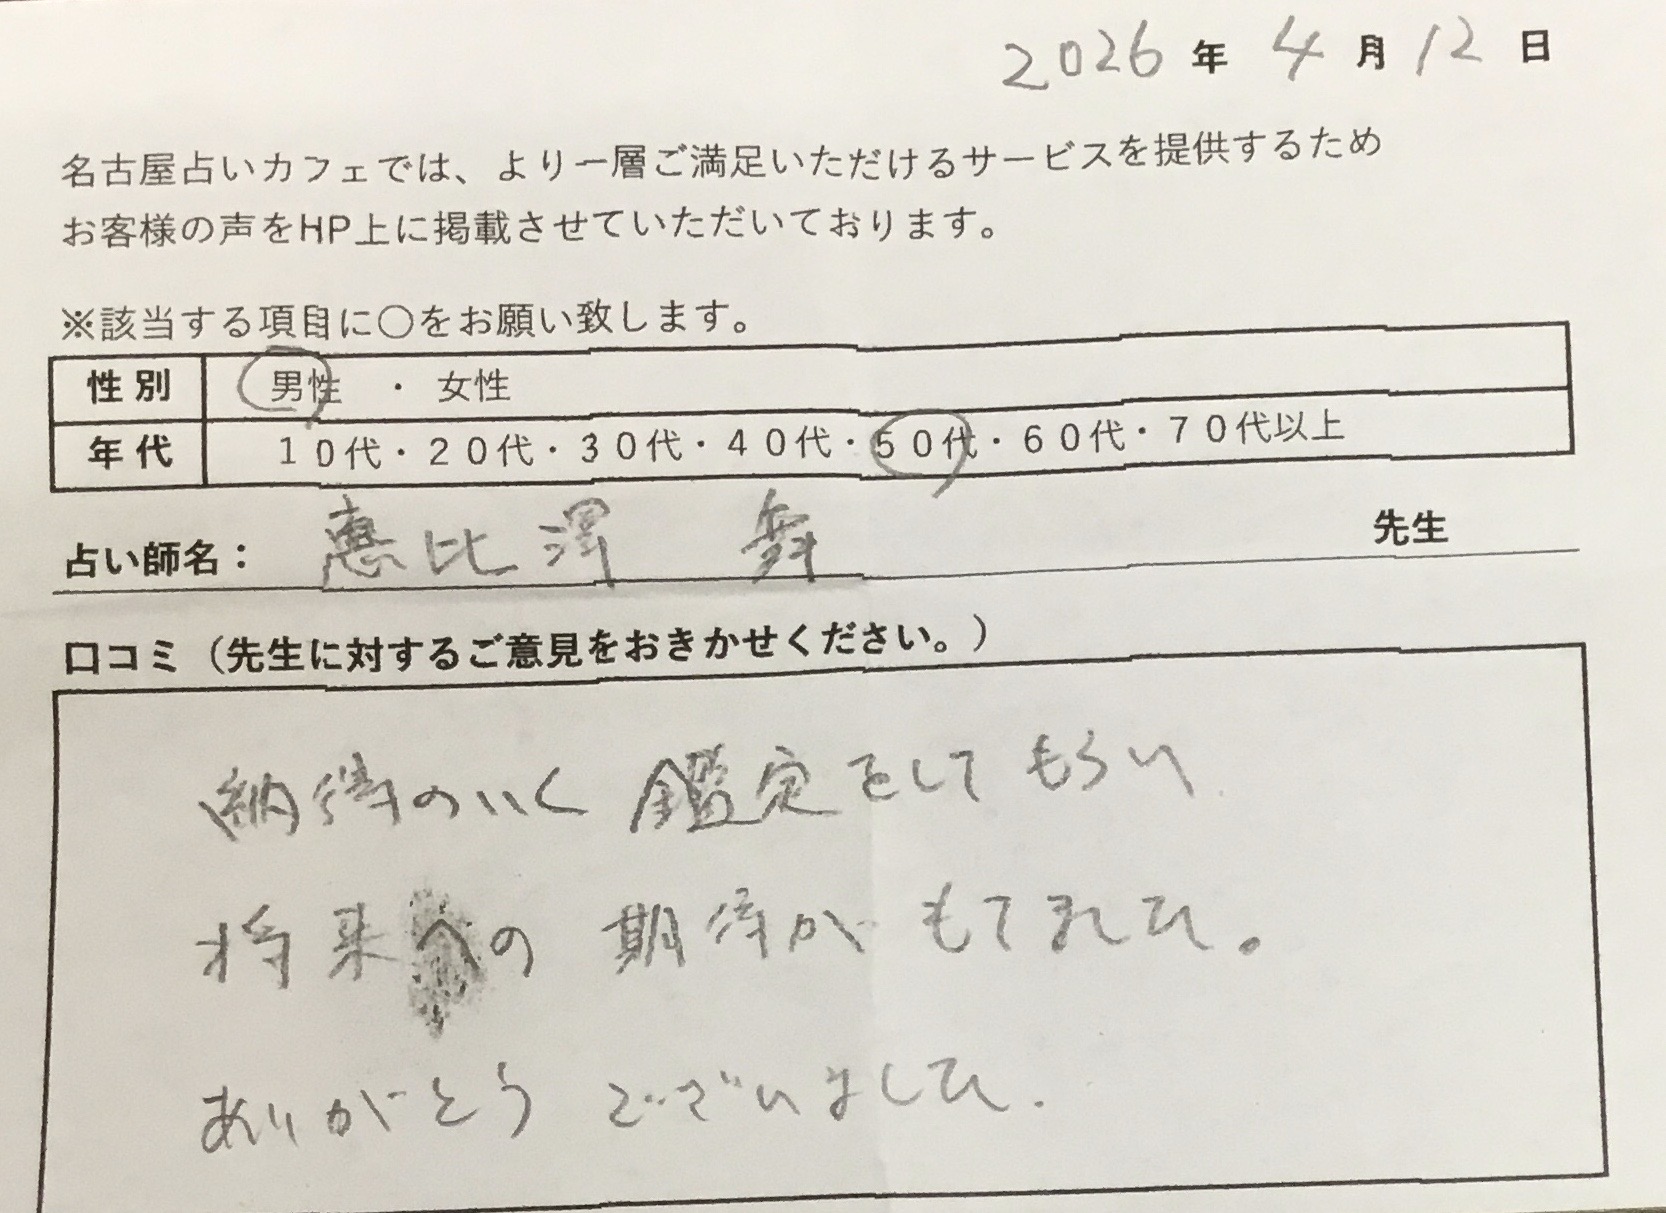 2026年4月12日
名古屋占いカフェでは、より一層ご満足いただけるサービスを提供するため
お客様の声をHP上に掲載させていただいております。
※該当する項目に○をお願い致します。
性別 男性 ・ 女性
年代 10代・20代・30代・40代・50代・60代・70代以上
占い師名： 恵比澤 舞 先生
口コミ（先生に対するご意見をおきかせください。）
納得のいく鑑定をしてもらい
将来への期待がもてました。
ありがとうございました.